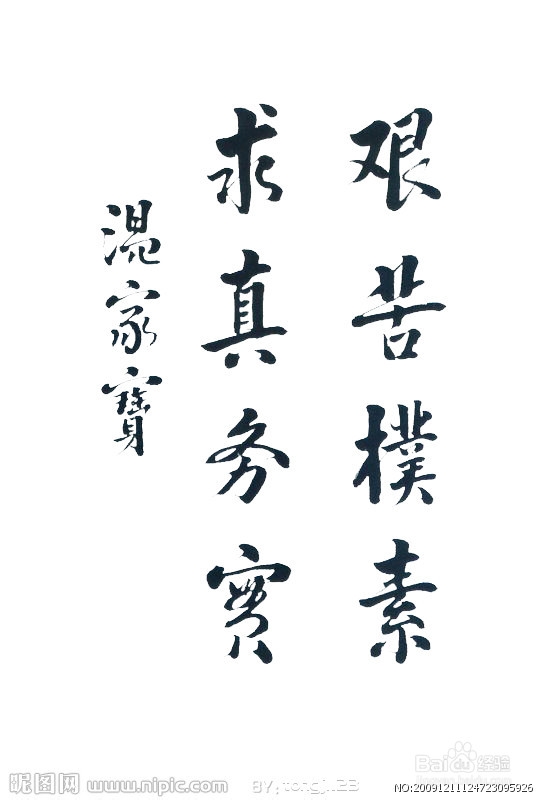 艰苦樸素
求真务實
温家寶
Baidu 经验
昵图网 www.nipic.com
BY: tongji123
NO:20091211124723095926